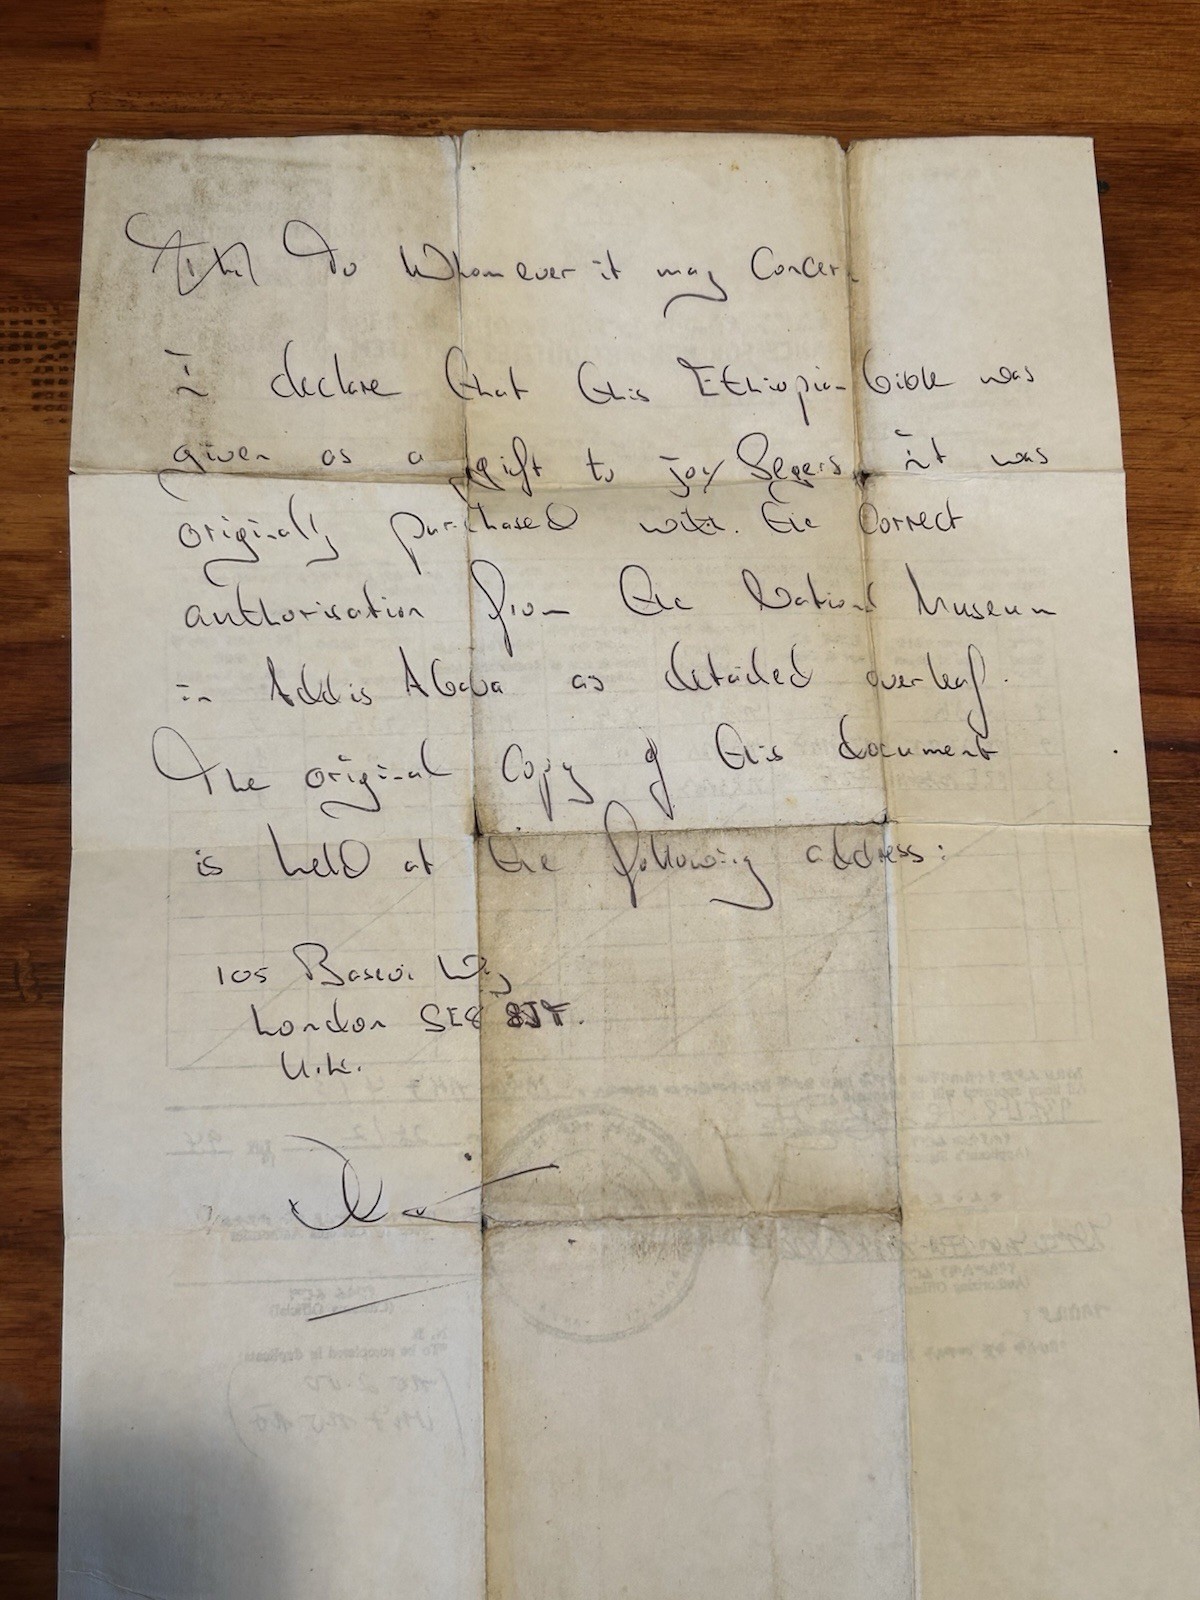 To Whomever it may Concern
I declare that this Ethiopian bible was
given as a gift to joy Segers. it was
originally purchased with. the correct
authorisation from the National Museum
in Addis Ababa as detailed overleaf.
The original Copy of this document
is held at the following address:
105 Basevi Way
London SE8 8JT.
U.K.